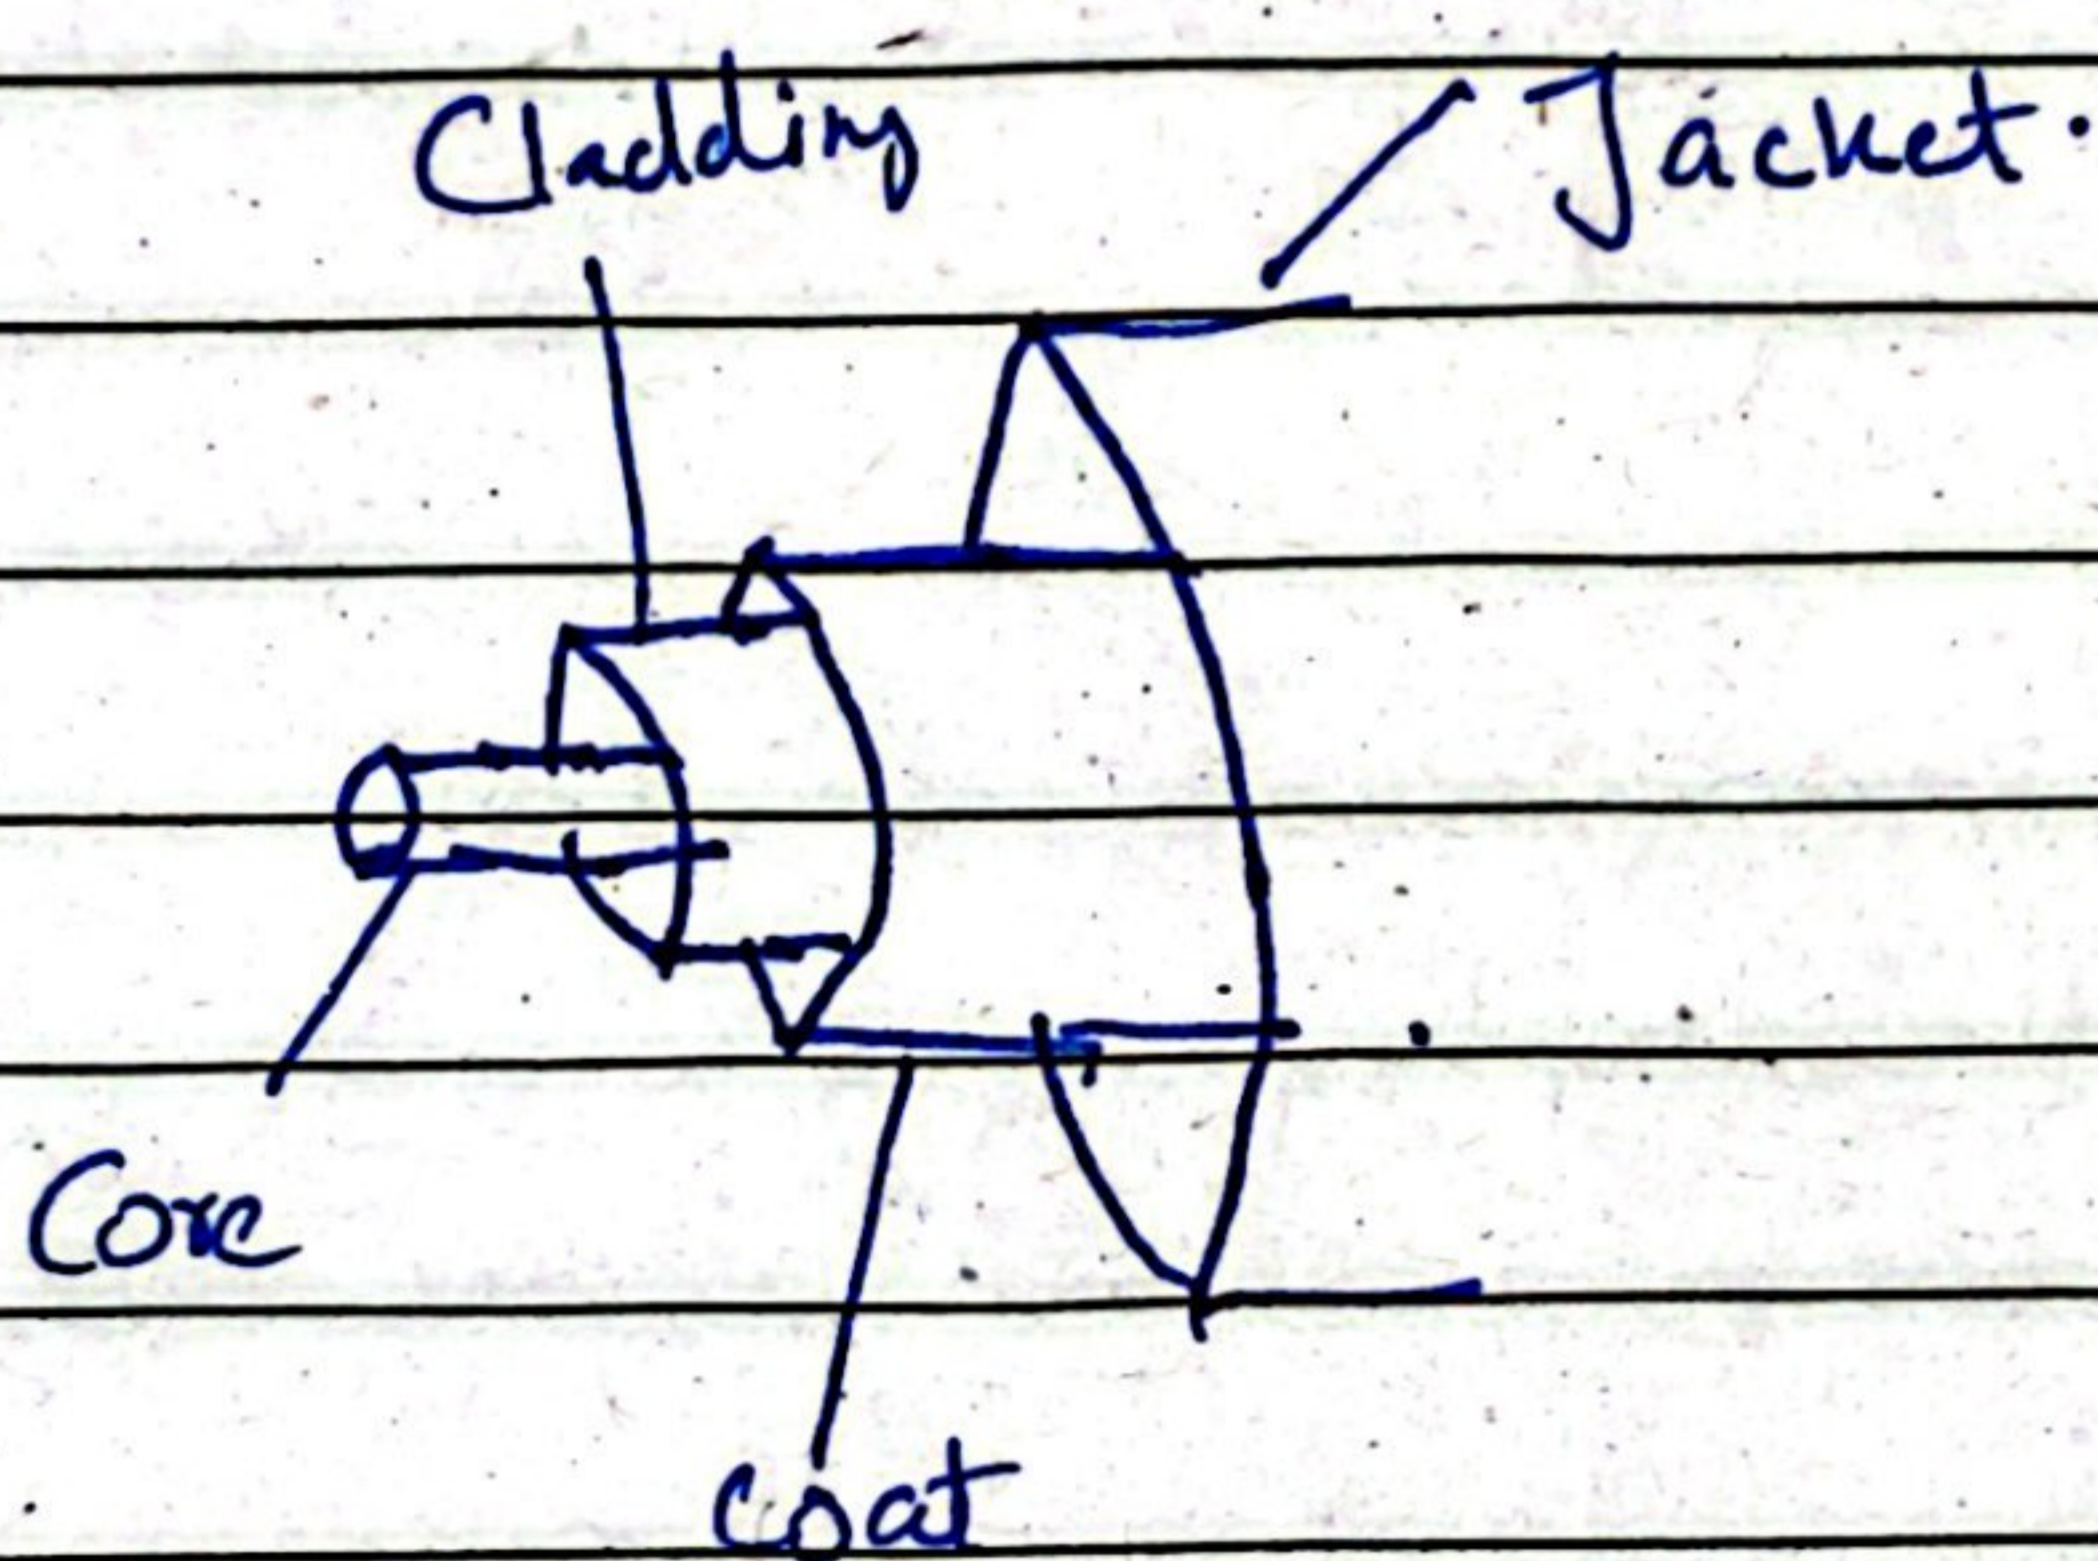 Cladding
Jacket.
Core
Coat